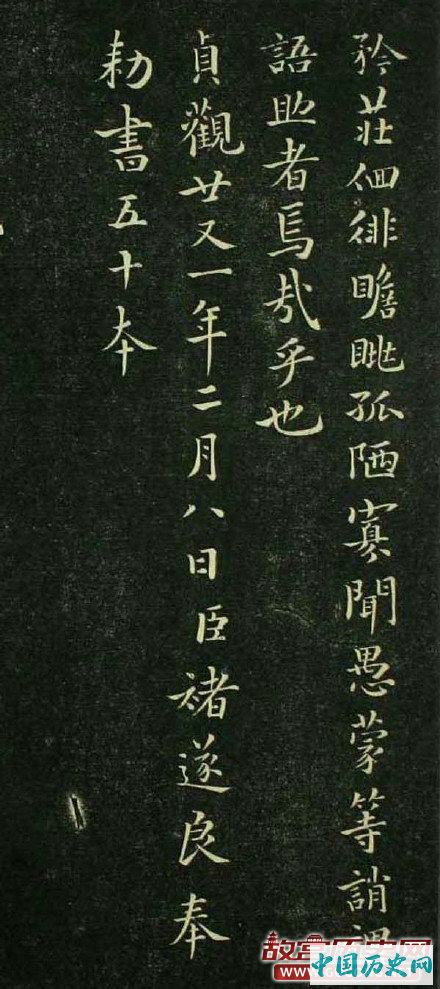 矜莊佪徘瞻眺孤陋寡聞愚蒙等誚謂
語助者焉哉乎也
貞觀廿又一年二月八日臣褚遂良奉
勑書五十本
中国历史网